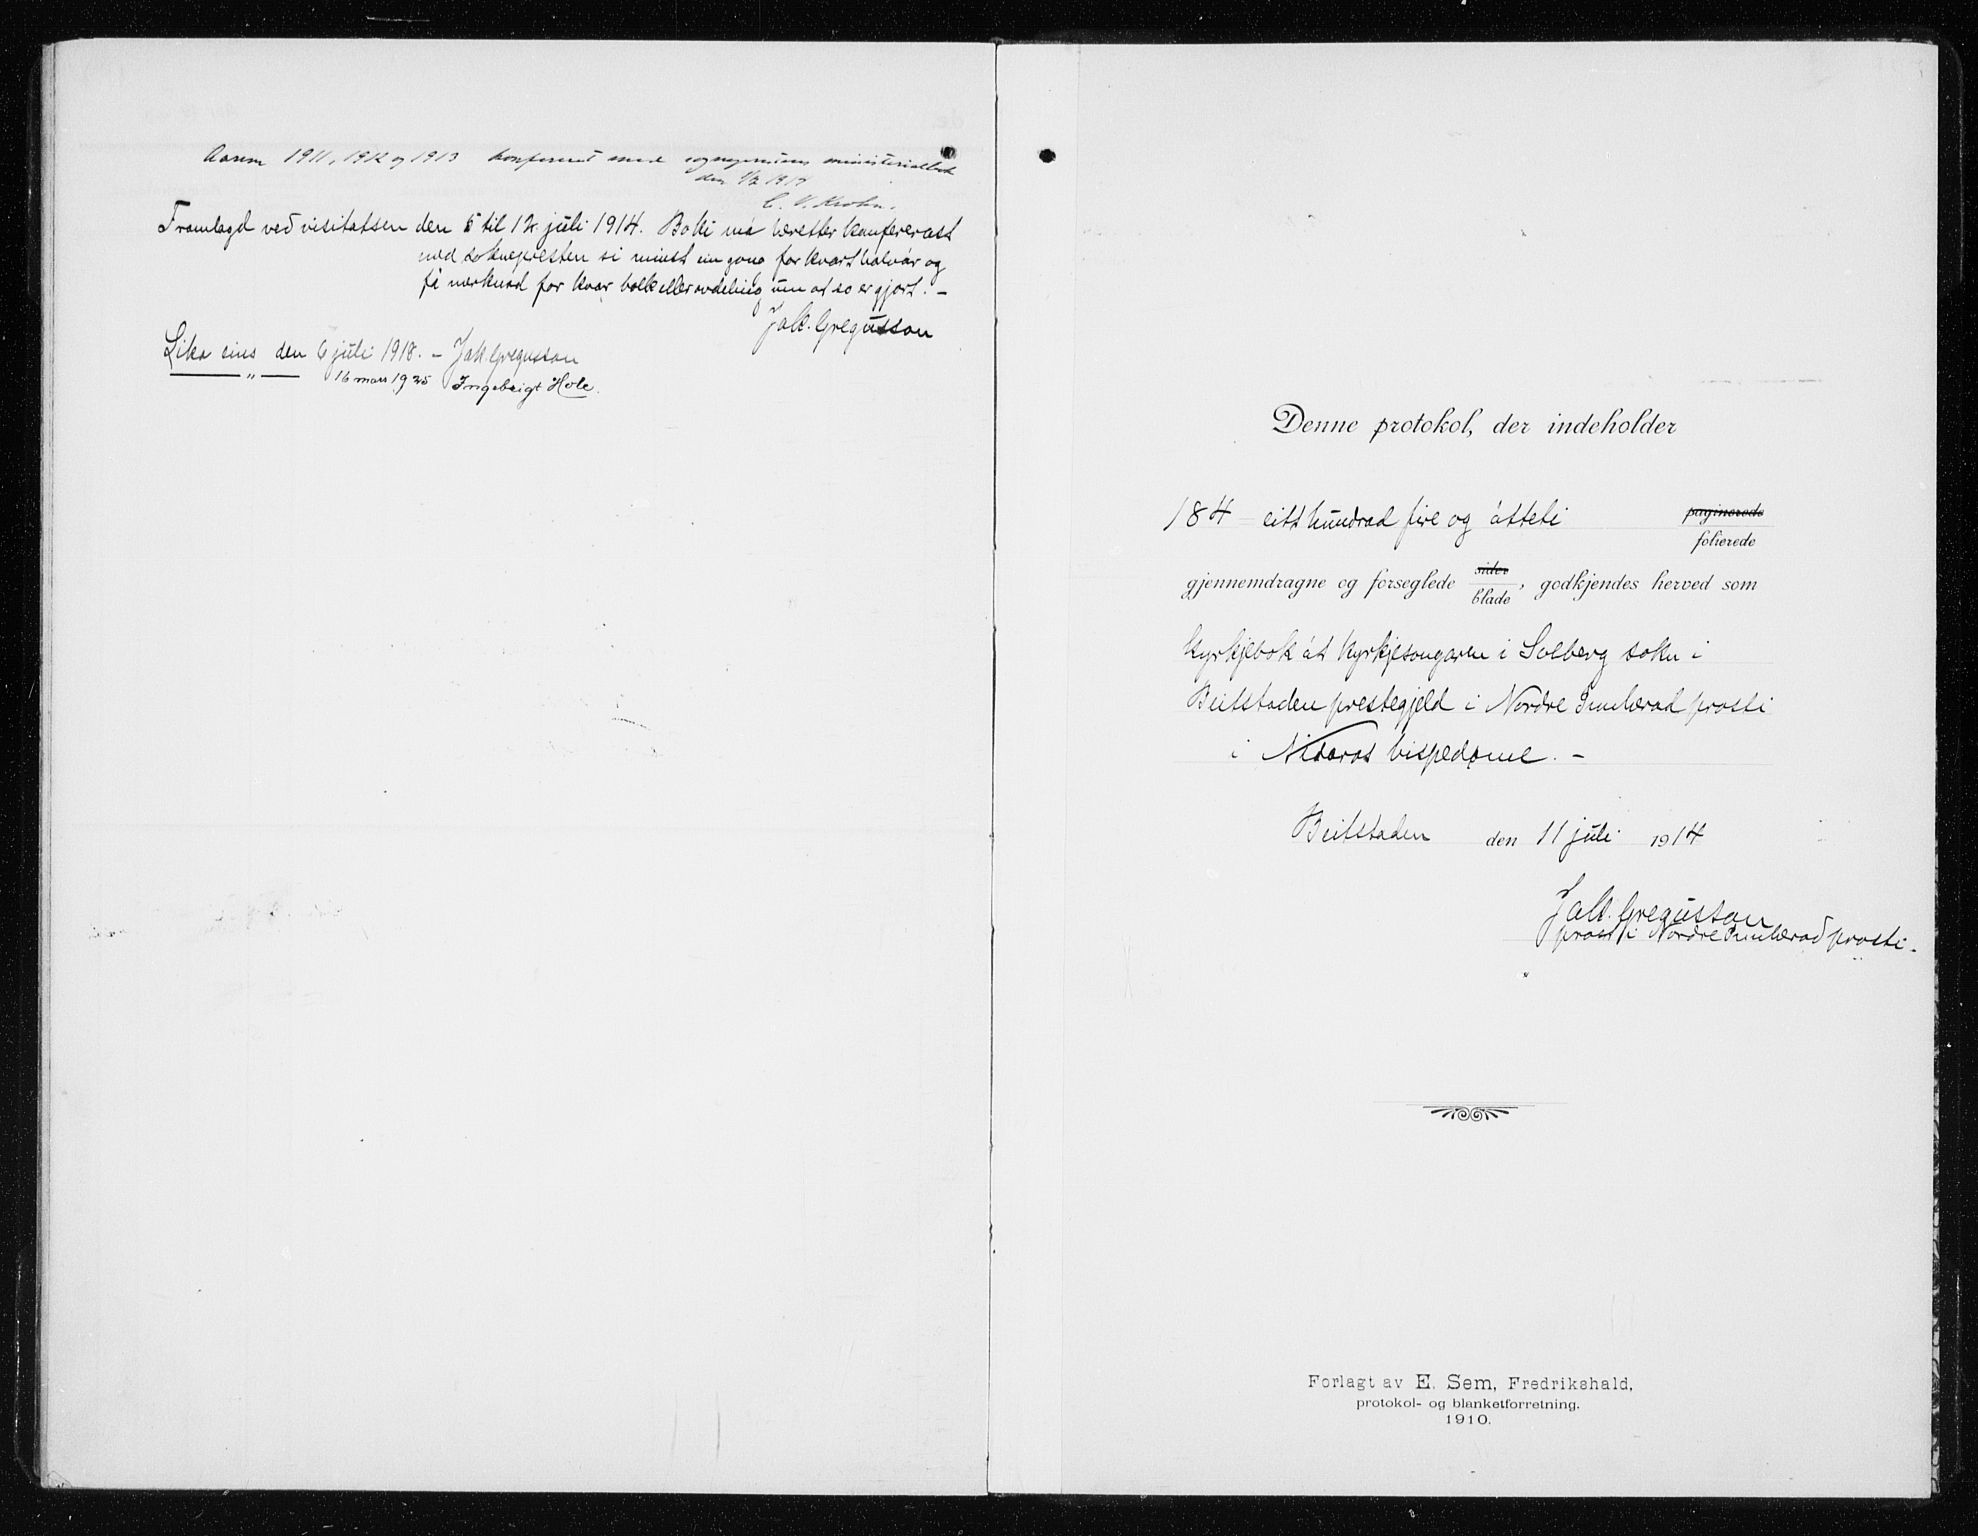 Aarene 1911, 1912 og 1913 konfereret med sogneprestens ministerialbok
den 1/2 1914
C. V. Krohn.
Framlagd ved visitatsen den 5 til 12 juli 1914. Boki má heretter konfererast
med soknepresten si minst ein gong for kvart halvár og
fá merknad for kvar bolk eller avdeling um at so er gjort. –
Jak. Gregusson
Lika eins den 6 juli 1918. – Jak. Gregusson
— " — 16 mars 1925 Ingebrigt Hole.
Denne protokol, der indeholder
184 – eitt hundrad fire og átteti paginerede
folierede
gjennemdragne og forseglede sider
blade, godkjendes herved som
kyrkjebok át kyrkjesongaren i Solberg sokn i
Beitstaden prestegjeld i Nordre Innherad prosti
i Nidaros bispedøme. –
Beitstaden den 11 juli 1914
Jak. Gregusson
prost i Nordre Innherad prosti.
Forlagt av E. Sem, Fredrikshald,
protokol- og blanketforretning.
1910.